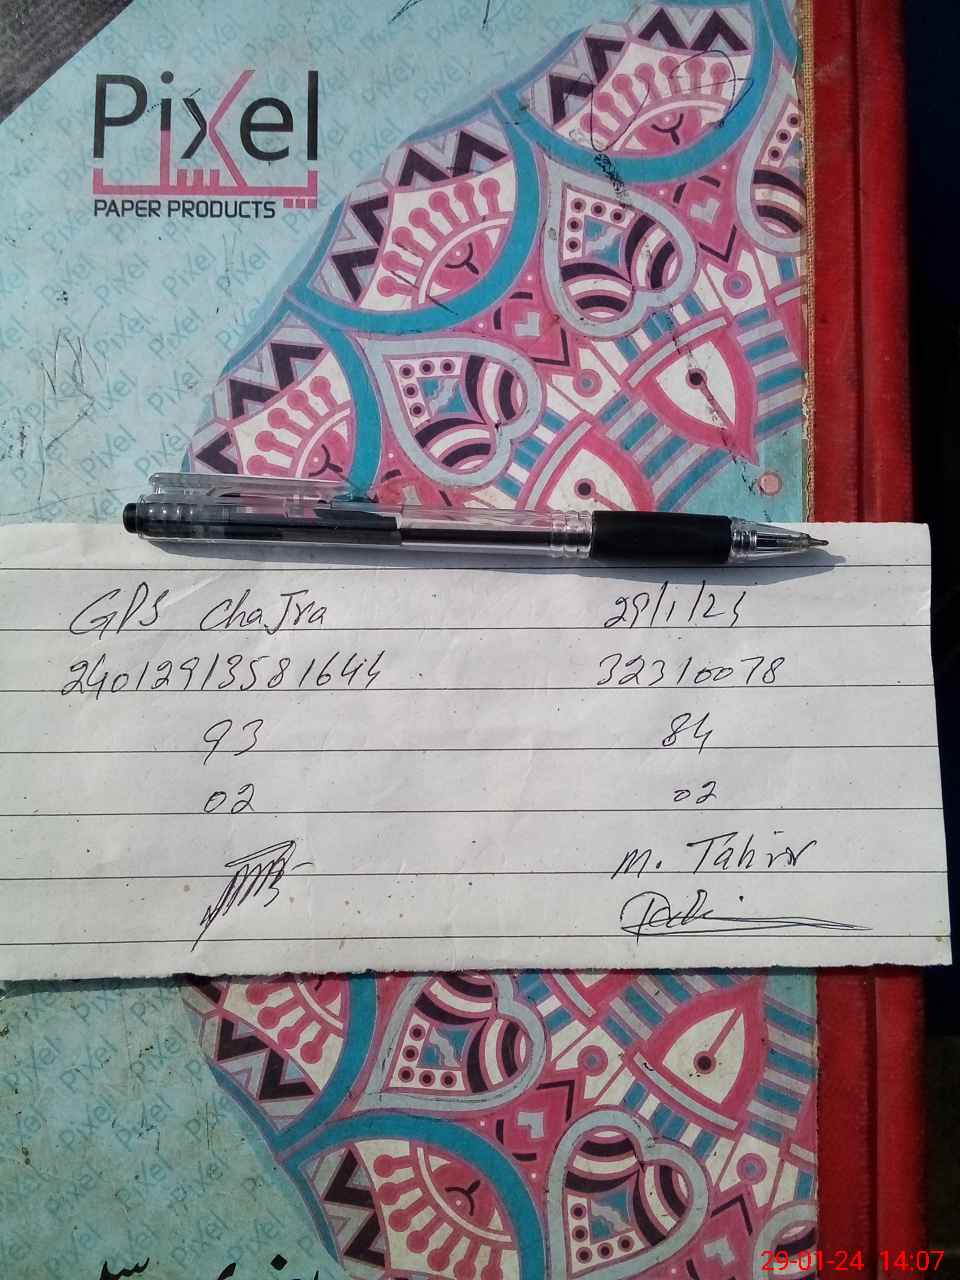 Pixel
PAPER PRODUCTS
GPS ChaJra 29/1/24
24012913581644 32310078
93 84
02 02
M. Tahir
29-01-24 14:07